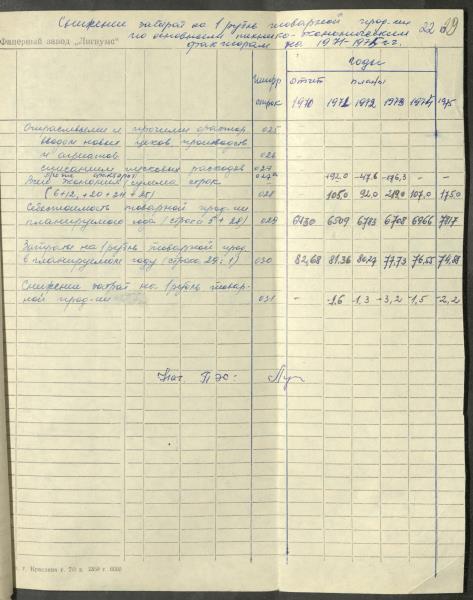 Снижение затрат на 1 рубль товарной прод-ии 22 29
по основным технико-экономическим
Фанерный завод „Лигнумс"
факторам на 1971-1975 г.г.
шифр годы
строк отчет планы
1970 1971 1972 1973 1974 1975
Отраслевыми и прочими фактор. 025
вводом новых цехов, производств
и агрегатов 026
списанием пусковых расходов 027
прочие факторы 027а - +92.0 -47,6 -176,3 - -
Всего экономия (сумма строк
(6+12,+20+24+25) 028 105,0 92,0 219,0 107,0 175,0
Себестоимость товарной прод-ии
планируемого года (строка 5+28) 029 6130 6509 6783 6708 6966 7117
Затраты на 1 рубль товарной прод.
в планируемом году (строка 29:1) 030 82,68 81.36 80.27 77.73 76,55 74,88
Снижение затрат на 1 рубль товар-
ной прод-ии 031 - -1,6 -1,3 -3,2 -1,5 -2,2
Нач. ПЭО:
г. Краслава г. Тип. з. 2259 т. 6000